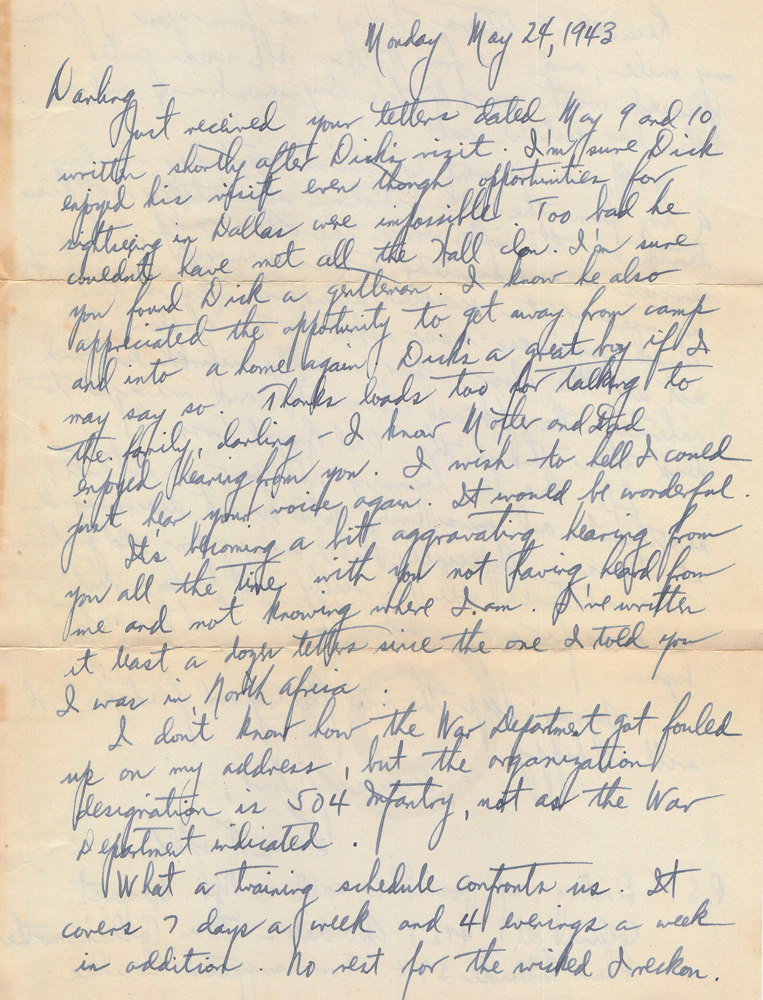 Monday May 24, 1943
Darling —
Just received your letters dated May 9 and 10
written shortly after Dick's visit. I'm sure Dick
enjoyed his visit even though opportunities for
sightseeing in Dallas were impossible. Too bad he
couldn't have met all the Hall clan. I'm sure
you found Dick a gentleman. I know he also
appreciated the opportunity to get away from camp
and into a home again. Dick's a great boy if I
may say so. Thanks loads too for talking to
the family, darling — I know Mother and Dad
enjoyed hearing from you. I wish to hell I could
just hear your voice again. It would be wonderful.
It's becoming a bit aggravating hearing from
you all the time with you not having heard from
me and not knowing where I am. I've written
at least a dozen letters since the one I told you
I was in North Africa.
I don't know how the War Department got fouled
up on my address, but the organization
designation is 504 Infantry, not as the War
Department indicated.
What a training schedule confronts us. It
covers 7 days a week and 4 evenings a week
in addition. No rest for the wicked I reckon.